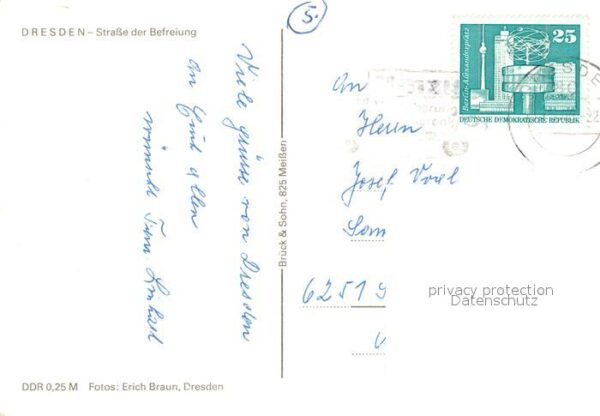 5.
DRESDEN – Straße der Befreiung
Viele Grüsse von Dresden
an Euch allen
wünscht Fam
Brück & Sohn, 825 Meißen
Berlin-Alexanderplatz
25
DEUTSCHE DEMOKRATISCHE REPUBLIK
An
Herrn
Josef
6251
privacy protection
Datenschutz
DDR 0,25 M Fotos: Erich Braun, Dresden